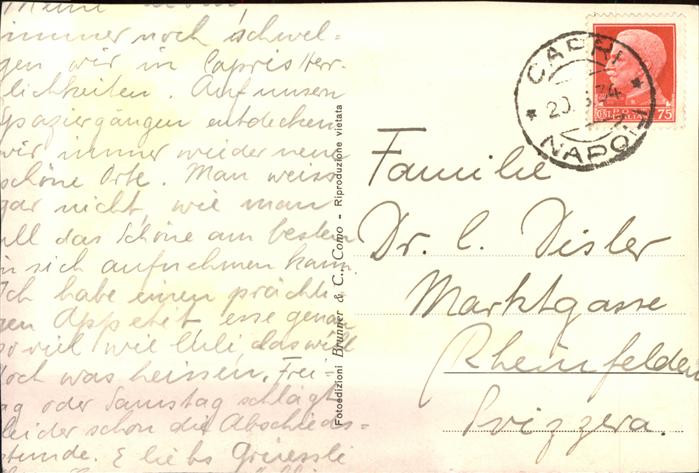 Meine
immer noch schwel-
gen wir in Capris Herr-
lichkeiten. Auf unsern
Spaziergängen entdecken
wir immer wieder neue
schöne Orte. Man weiss
gar nicht, wie man
all das Schöne am besten
in sich aufnehmen kann.
Ich habe einen prächti-
gen Appetit esse genau
so viel wie Ueli, das will
doch was heissen. Frei-
tag oder Samstag schlägt
leider schon die Abschieds-
stunde. E liebs Grüessli
Fotoedizioni Brunner & C., Como - Riproduzione vietata
CAPRI
NAPOLI
75
Familie
Dr. C. Disler
Marktgasse
Rheinfelden
Svizzera.